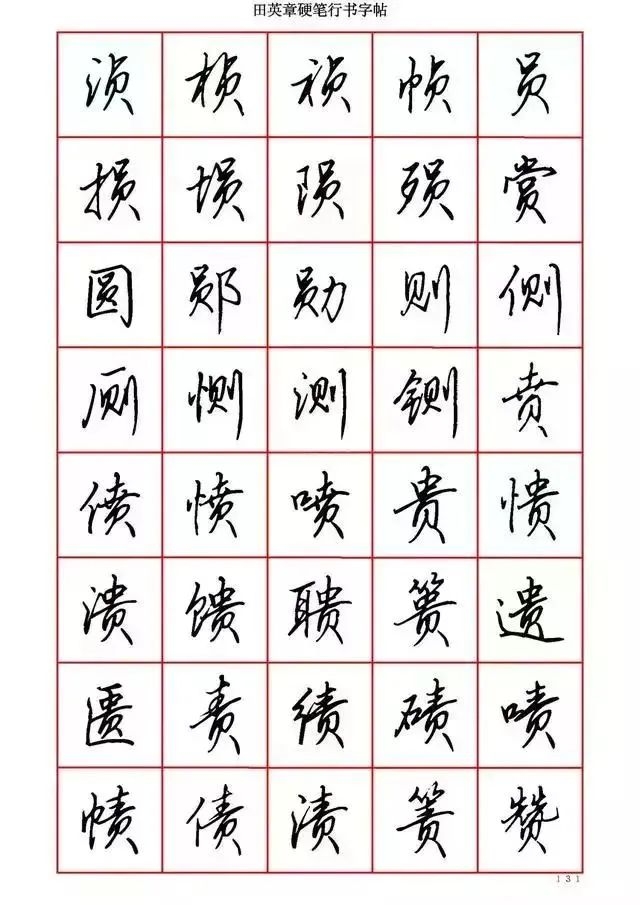 田英章硬笔行书字帖
浈桢祯帧员
损埙陨殒赏
圆郧勋则侧
厕恻测铡贲
偾愤喷贵愦
溃馈聩篑遗
匮责绩碛啧
帻债渍箦赞
131